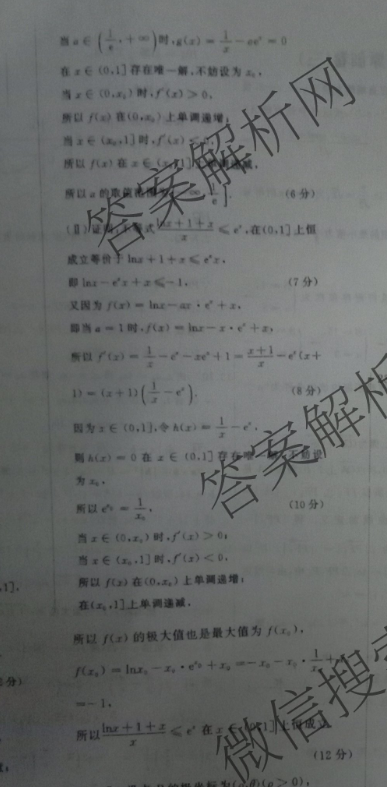 当a∈(1/e,+∞)时,g(x)=1/x-ae^x=0
在x∈(0,1]存在唯一解,不妨设为x₀,
当x∈(0,x₀)时,f'(x)>0,
所以f(x)在(0,x₀)上单调递增;
当x∈(x₀,1]时,f'(x)<0,
所以f(x)在x∈(x₀,1]上单调递减,
所以a的取值范围 (6分)
(Ⅱ)证明:不等式(lnx+1+x)/x≤e^x,在(0,1]上恒
成立等价于lnx+1+x≤e^x x,
即lnx-e^x x+x≤-1, (7分)
又因为f(x)=lnx-ax·e^x+x,
即当a=1时,f(x)=lnx-x·e^x+x,
所以f'(x)=1/x-e^x-xe^x+1=(x+1)/x-e^x(x+
1)=(x+1)(1/x-e^x). (8分)
因为x∈(0,1],令h(x)=1/x-e^x,
则h(x)=0在x∈(0,1]存在唯一 不妨设
为x₀,
所以e^x₀=1/x₀, (10分)
当x∈(0,x₀)时,f'(x)>0;
当x∈(x₀,1]时,f'(x)<0,
所以f(x)在(0,x₀)上单调递增;
在(x₀,1]上单调递减.
所以f(x)的极大值也是最大值为f(x₀),
f(x₀)=lnx₀-x₀·e^x₀+x₀=-x₀-x₀·1/x₀+
=-1,
所以(lnx+1+x)/x≤e^x在x∈(0,1]上恒成立
(12分)
答案解析网
答案解析
微信搜索